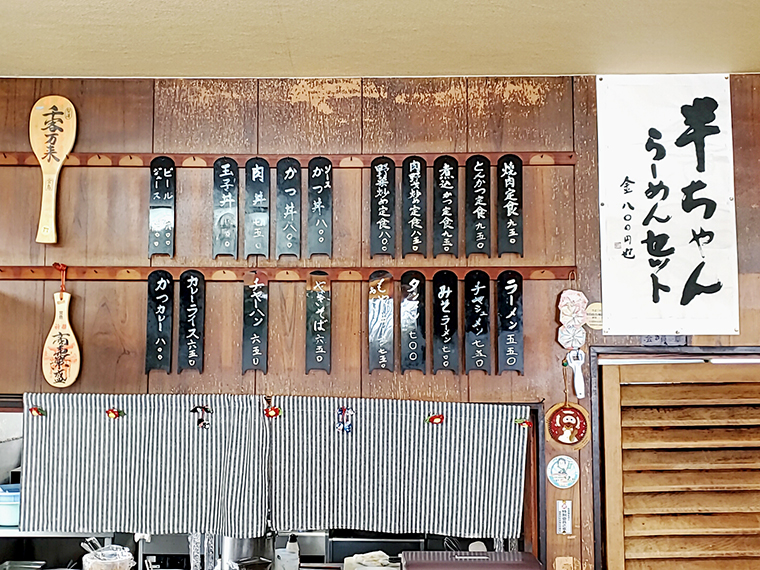 半ちゃん
らーめんセット
金八〇〇円也
焼肉定食 九五〇
とんかつ定食 九五〇
煮込かつ定食 九五〇
肉野菜炒め定食 八五〇
野菜炒め定食 八〇〇
ソースかつ丼 八〇〇
かつ丼 八〇〇
肉丼 七五〇
玉子丼
ビール
ジュース
ラーメン 五五〇
チャシューメン 七五〇
みそラーメン 七〇〇
七〇〇
七五〇
やきそば 六五〇
チャーハン 六五〇
カレーライス 六五〇
かつカレー 八〇〇
千客万来
商売繁盛